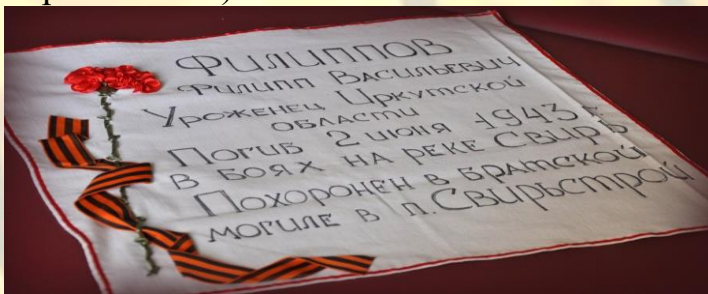 Филиппов
Филипп Васильевич
Уроженец Иркутской
области
Погиб 2 июня 1943 г
в боях на реке Свирь
Похоронен в братской
могиле в п. Свирьстрой